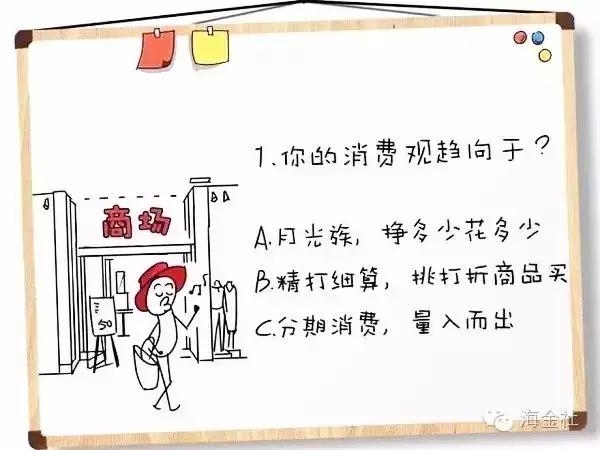 1.你的消费观趋向于？
A.月光族，挣多少花多少
B.精打细算，挑打折商品买
C.分期消费，量入而出
商场
50
海金社